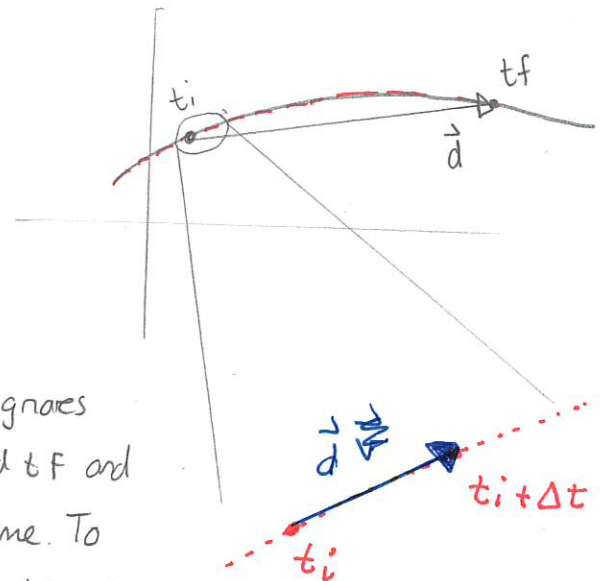 tf
ti
d
gnores
d tf and
me. To
d
ti + Δt
ti